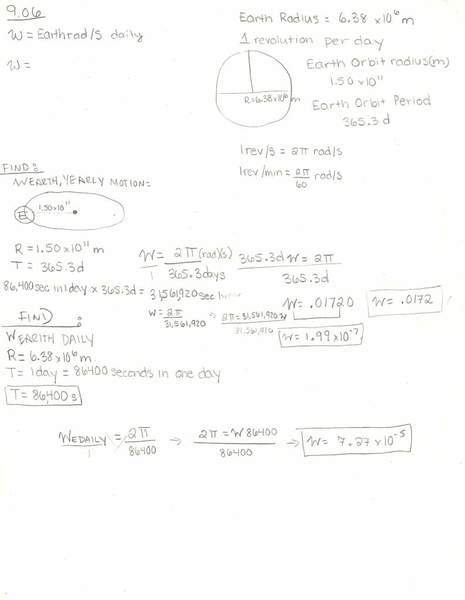 9.06
W = Earth rad/s daily
W =
Earth Radius = 6.38 x10⁶ m
1 revolution per day
R=6.38x10⁶ m
Earth Orbit radius(m)
1.50 x10¹¹
Earth Orbit Period
365.3 d
1rev/s = 2π rad/s
1rev/min = 2π/60 rad/s
FIND:
WEARTH, YEARLY MOTION=
E 1.50x10¹¹
R = 1.50 x10¹¹ m
T = 365.3d
W/1 = 2π (rad)(s)/365.3days
365.3d W = 2π/365.3d
86,400 sec in 1 day x 365.3d = 31,561,920 sec
W = 2π/31,561,920
2π = 31,561,920 W/31,561,920
W = .01720
W = .0172
W = 1.99x10⁻⁷
FIND :
WEARTH DAILY
R= 6.38x10⁶ m
T= 1day = 86400 seconds in one day
T = 86,400 s
WEDAILY/1 = 2π/86400 → 2π = W 86400/86400 → W= 7.27 x10⁻⁵